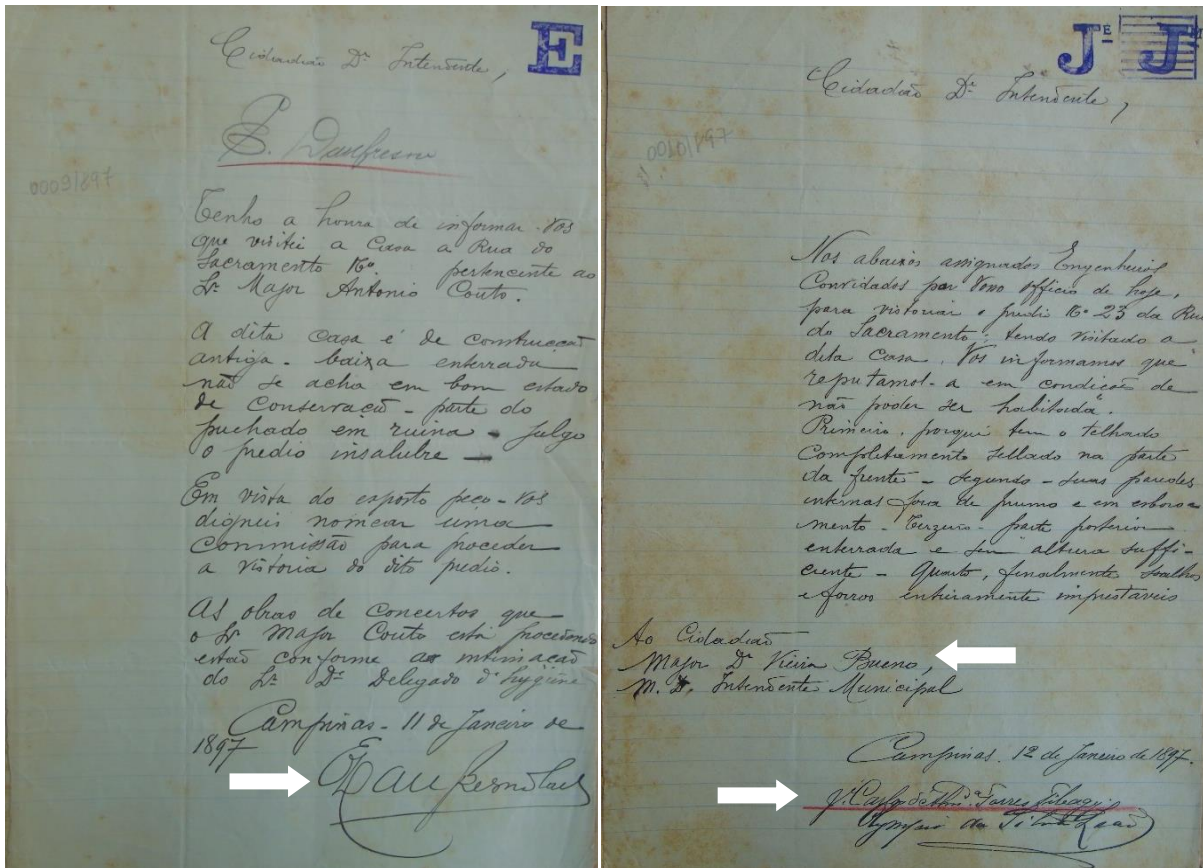 E
Cidadão Dr Intendente,
E. Daufresne
0009/897
Tenho a honra de informar-Vos
que visitei a Casa a Rua do
Sacramento No. pertencente ao
Sr Major Antonio Couto.
A dita casa é de construcção
antiga - baixa enterrada
não se acha em bom estado
de Conservação - parte do
puchado em ruina - julgo
o predio insalubre -
Em vista do exposto peço-Vos
digneis nomear uma
Commissão para proceder
a vistoria do dito predio.
As obras de Concertos que
o Sr Major Couto está procedendo
estão conforme a intimação
do Sr Dr Delegado d'hygiene
Campinas - 11 de Janeiro de
1897
JÉ J
Cidadão Dr Intendente,
0010/897
Nos abaixos assignados Engenheiros
Convidados por Vosso officio de hoje,
para vistoriar o predio No 23 da Rua
do Sacramento, tendo visitado a
dita casa, Vos informamos que
reputamol-a em condição de
não poder ser habitada.
Primeiro, porque tem o telhado
Completamente sellado na parte
da frente - Segundo - suas paredes
internas fora de prumo e em esboroa
mento - Terzeiro - parte posterior
enterrada e sem altura suffi-
ciente - Quarto, finalmente soalhos
e forros inteiramente imprestaveis
Ao Cidadão
Major Dr Vieira Bueno,
M. D. Intendente Municipal
Campinas. 12 de Janeiro de 1897.
Torres Tibagy
Olympio da Silva Leão